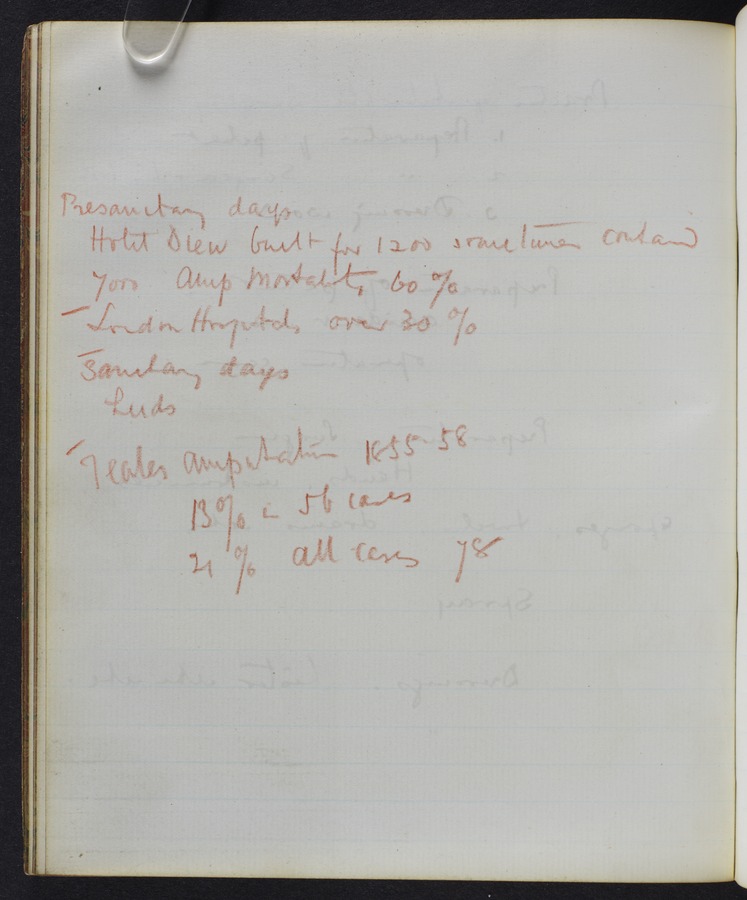 Presanitary days
Hotel Dieu built for 1200 sometimes contain'd
7000 Amp Mortality 60 %
– London Hospitals over 30 %
– Sanitary days
Leeds
– Teales amputation 1855-58
13% in 56 cases
21 % all cases 78